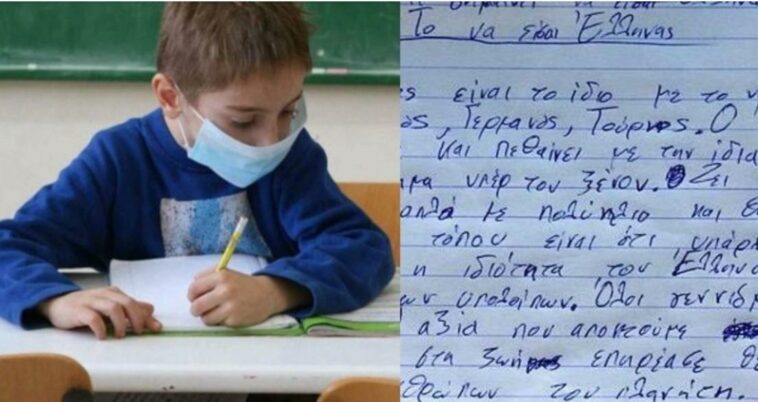 να είσαι
Το να είσαι Έλληνας
ς είναι το ίδιο με το ν
ός, Γερμανός, Τούρκος. Ο
και πεθαίνει με την ίδια
μα υπέρ του ξένου. Ζει
απλά με πολύ ήλιο και θ
τόπου είναι ότι υπάρχ
η ιδιότητα του Έλλην
ων υπολοίπων. Όλοι γεννιόμ
αξία που αποκτούμε
στα ζωή επηρέασε θε
θρώπων του πλανήτη.